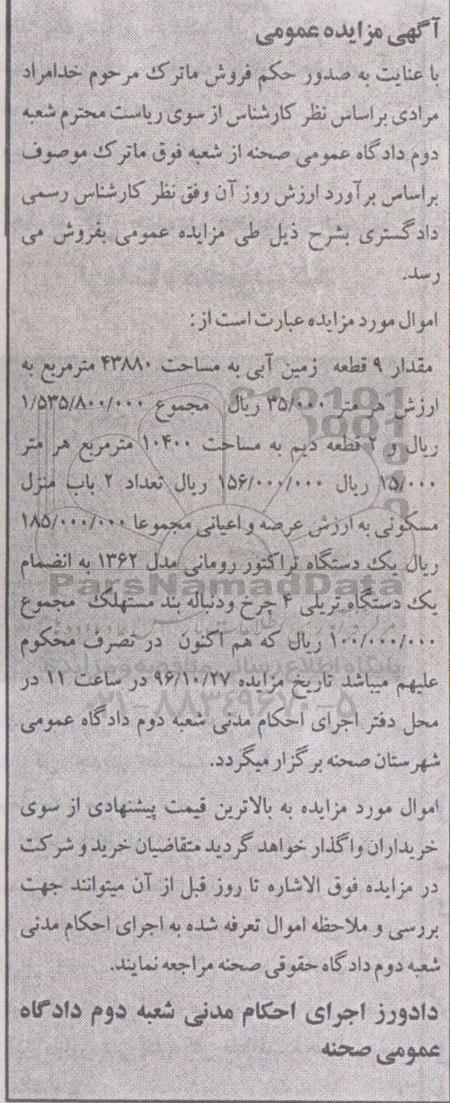 آگهی مزایده عمومی
با عنایت به صدور حکم فروش ماترک مرحوم خدامراد
مرادی براساس نظر کارشناس از سوی ریاست محترم شعبه
دوم دادگاه عمومی صحنه از شعبه فوق ماترک موصوف
براساس برآورد ارزش روز آن وفق نظر کارشناس رسمی
دادگستری بشرح ذیل طی مزایده عمومی بفروش می
رسد.
اموال مورد مزایده عبارت است از:
مقدار ۹ قطعه زمین آبی به مساحت ۴۳۸۸۰ مترمربع به
ارزش هر متر ۳۵/۰۰۰ ریال مجموع ۱/۵۳۵/۸۰۰/۰۰۰
ریال و ۲ قطعه دیم به مساحت ۱۰۴۰۰ مترمربع هر متر
۱۵/۰۰۰ ریال ۱۵۶/۰۰۰/۰۰۰ ریال تعداد ۲ باب منزل
مسکونی به ارزش عرصه و اعیانی مجموعا ۱۸۵/۰۰۰/۰۰۰
ریال یک دستگاه تراکتور رومانی مدل ۱۳۶۲ به انضمام
ParsNamadData
یک دستگاه تریلی ۴ چرخ ودنباله بند مستهلک مجموع
۱۰۰/۰۰۰/۰۰۰ ریال که هم اکنون در تصرف محکوم
پایگاه اطلاع رسانی مناقصه و مزایده
علیهم میباشد تاریخ مزایده ۹۶/۱۰/۲۷ در ساعت ۱۱ در
۰۲۱-۸۸۳۴۹۶۷۰-۵
محل دفتر اجرای احکام مدنی شعبه دوم دادگاه عمومی
شهرستان صحنه برگزار میگردد.
اموال مورد مزایده به بالاترین قیمت پیشنهادی از سوی
خریداران واگذار خواهد گردید متقاضیان خرید و شرکت
در مزایده فوق الاشاره تا روز قبل از آن میتوانند جهت
بررسی و ملاحظه اموال تعرفه شده به اجرای احکام مدنی
شعبه دوم دادگاه حقوقی صحنه مراجعه نمایند.
دادورز اجرای احکام مدنی شعبه دوم دادگاه
عمومی صحنه